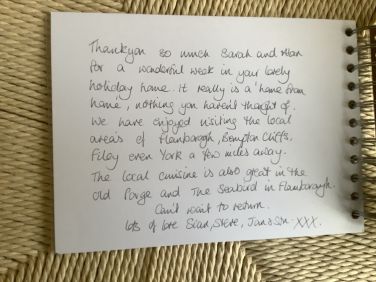 Thankyou so much Sarah and Alan
for a wonderful week in your lovely
holiday home. It really is a 'home from
home', nothing you havent thought of.
We have enjoyed visiting the local
areas of Flamborough, Bempton Cliffs,
Filey even York a few miles away.
The local cuisine is also great in the
old Forge and The Seabird in Flamborough.
Can't wait to return.
lots of love Sian, Steve, Jan & XXX.